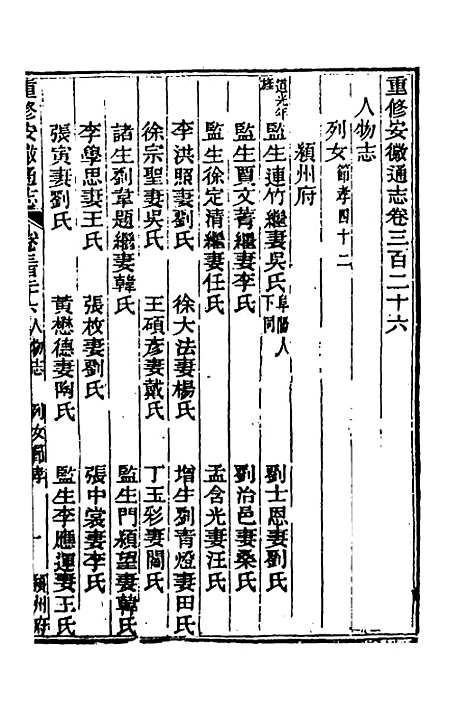 重修安徽通志卷三百二十六
人物志
列女節孝四十二
潁州府
道光年旌監生連竹繼妻吳氏阜陽人下同 劉士恩妻劉氏
監生賈文菁繼妻李氏 劉治邑妻桑氏
監生徐定清繼妻任氏 孟含光妻汪氏
李洪照妻劉氏 徐大法妻楊氏 增生劉青燈妻田氏
徐宗聖妻吳氏 王碩彥妻戴氏 丁玉彩妻閻氏
諸生劉韋題繼妻韓氏 監生門頫望妻韓氏
李學思妻王氏 張枚妻劉氏 張中裳妻李氏
張寅妻劉氏 黃懋德妻陶氏 監生李應運妻王氏
重修安徽通志 卷三百二十六 人物志 列女節孝 一 潁州府